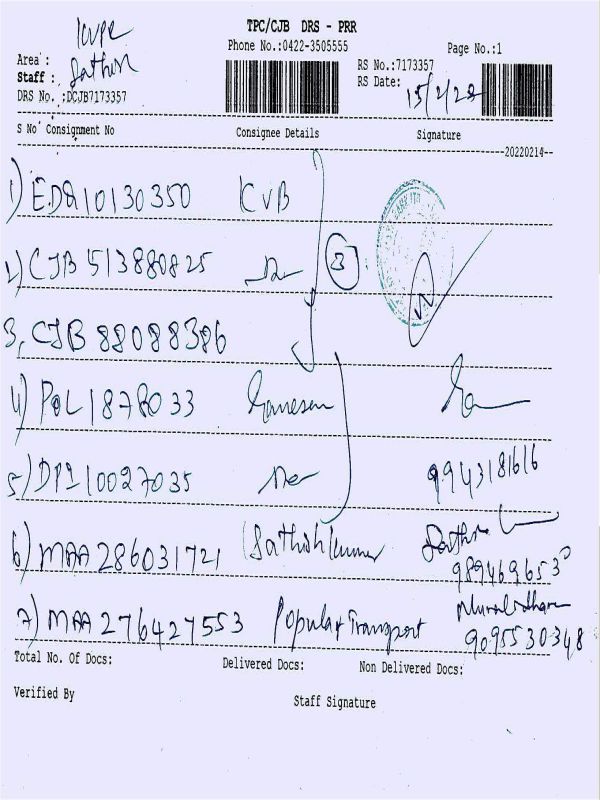 TPC/CJB DRS - PRR
Phone No.:0422-3505555
Page No.:1
Area :
RS No.:7173357
Staff : Sathis
RS Date: 15/2/22
DRS No. :DCJB7173357
S No Consignment No Consignee Details Signature
20220214
1) EDR10130350 KVB
2) CJB 513880825
3
3, CJB 88088386
4) POL 1878033 Ganesan
5) DPI 10027035
9943181616
6) MAA 286031721 Sathishkumar
9894696530
7) MAA 276427553 Popular Transport Muralidharan
9095530348
Total No. Of Docs: Delivered Docs: Non Delivered Docs:
Verified By
Staff Signature